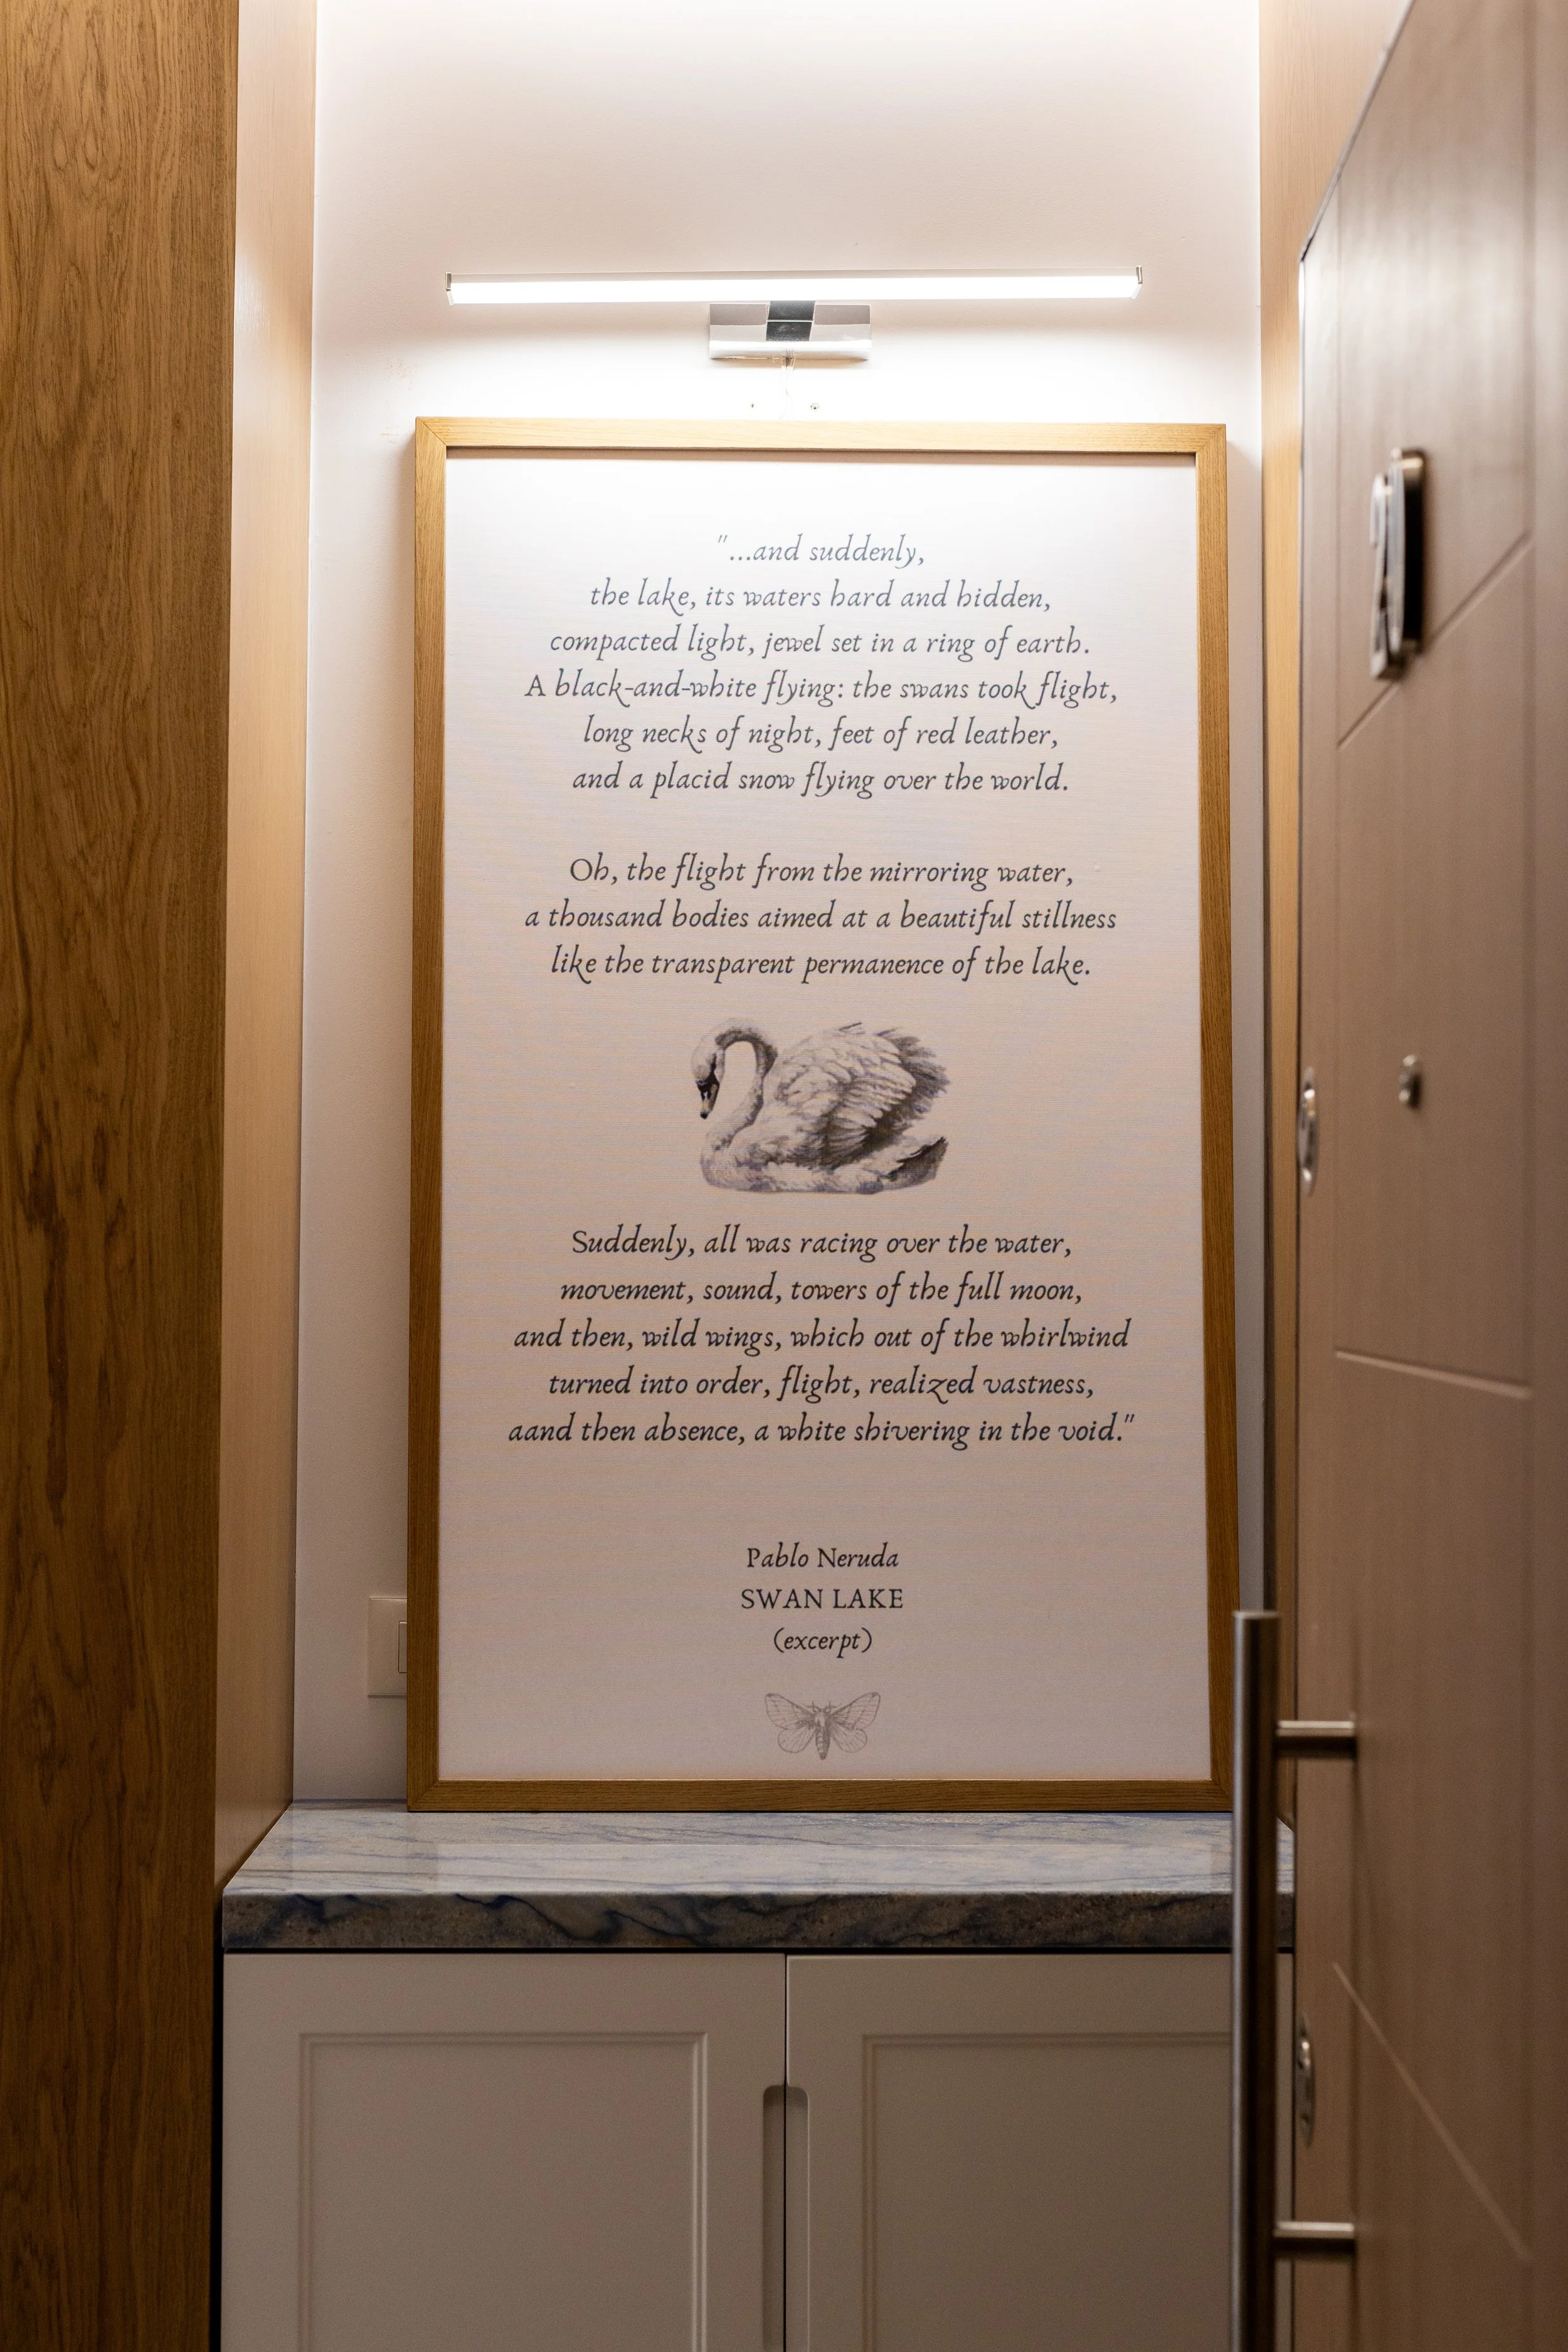 "...and suddenly,
the lake, its waters hard and hidden,
compacted light, jewel set in a ring of earth.
A black-and-white flying: the swans took flight,
long necks of night, feet of red leather,
and a placid snow flying over the world.
Oh, the flight from the mirroring water,
a thousand bodies aimed at a beautiful stillness
like the transparent permanence of the lake.
Suddenly, all was racing over the water,
movement, sound, towers of the full moon,
and then, wild wings, which out of the whirlwind
turned into order, flight, realized vastness,
aand then absence, a white shivering in the void."
Pablo Neruda
SWAN LAKE
(excerpt)